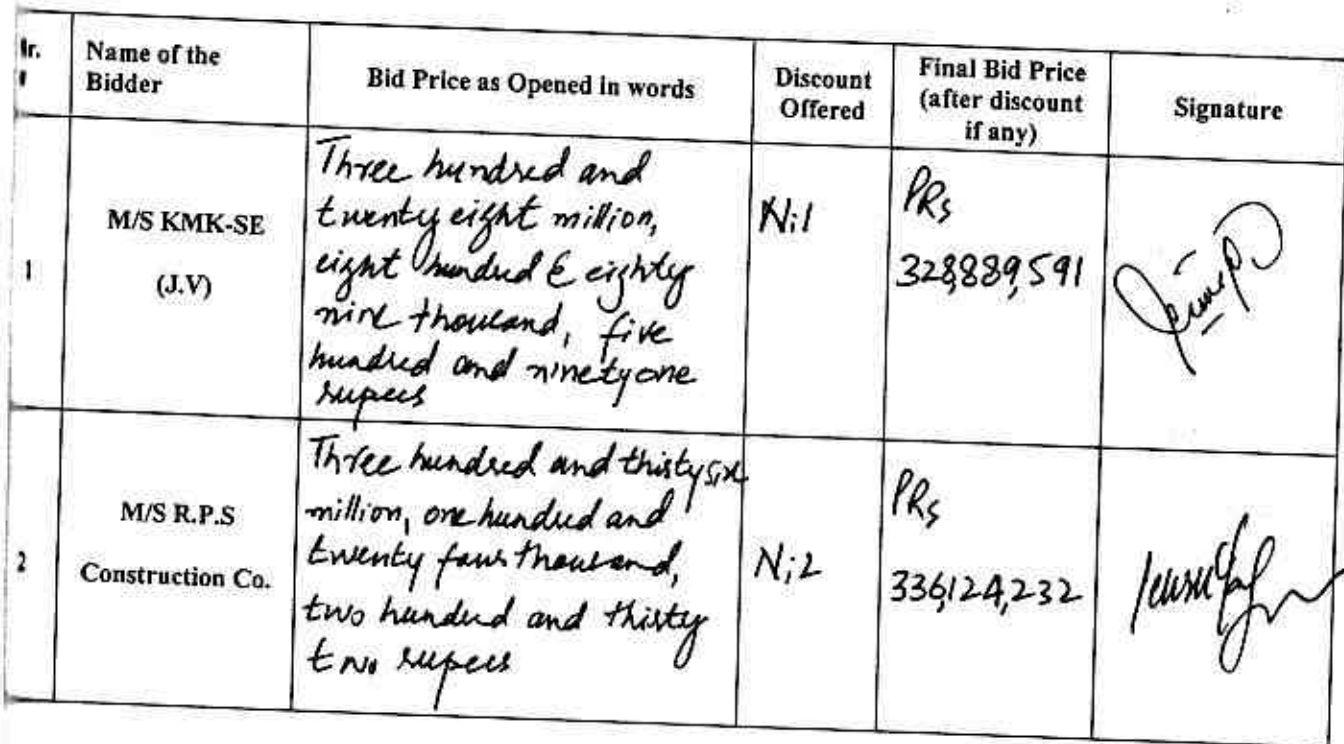 Name of the
Bidder
Bid Price as Opened in words
Discount
Offered
Final Bid Price
(after discount
if any)
Signature
1
M/S KMK-SE
(J.V)
Three hundred and
twenty eight million,
eight hundred & eighty
nine thousand, five
hundred and ninety one
rupees
Nil
PRs
328,889,591
2
M/S R.P.S
Construction Co.
Three hundred and thirty six
million, one hundred and
twenty four thousand,
two hundred and thirty
two rupees
Nil
PRs
336,124,232